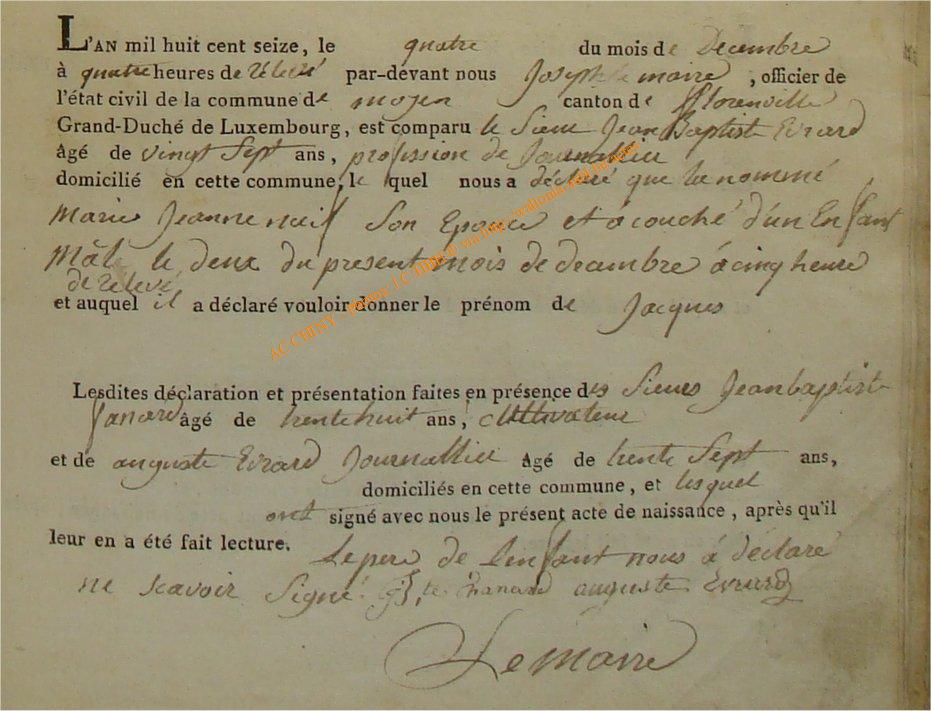 L'AN mil huit cent seize, le quatre du mois de Decembre
à quatre heures de relevé par-devant nous Joseph Lemaire, officier de
l'état civil de la commune de moyen canton de fflorenville
Grand-Duché de Luxembourg, est comparu le Sieur Jean Baptiste Evrard
âgé de vingt Sept ans, profession de Journallier
domicilié en cette commune, le quel nous a déclaré que la nommé
Marie Jeanne Son Epouse et acouché d'un Enfant
Mâle le deux du present mois de decembre à cinq heure
de relevé
et auquel il a déclaré vouloir donner le prénom de Jacques
Lesdites déclaration et présentation faites en présence des Sieurs Jeanbaptiste
âgé de trente huit ans, Cultivateur
et de auguste Evrard Journallier âgé de trente Sept ans,
domiciliés en cette commune, et lesquel
ont signé avec nous le présent acte de naissance, après qu'il
leur en a été fait lecture. Le pere de l'enfant nous à déclaré
ne scavoir Signé auguste Evrard
Lemaire
AC CHINY - photos J.C.